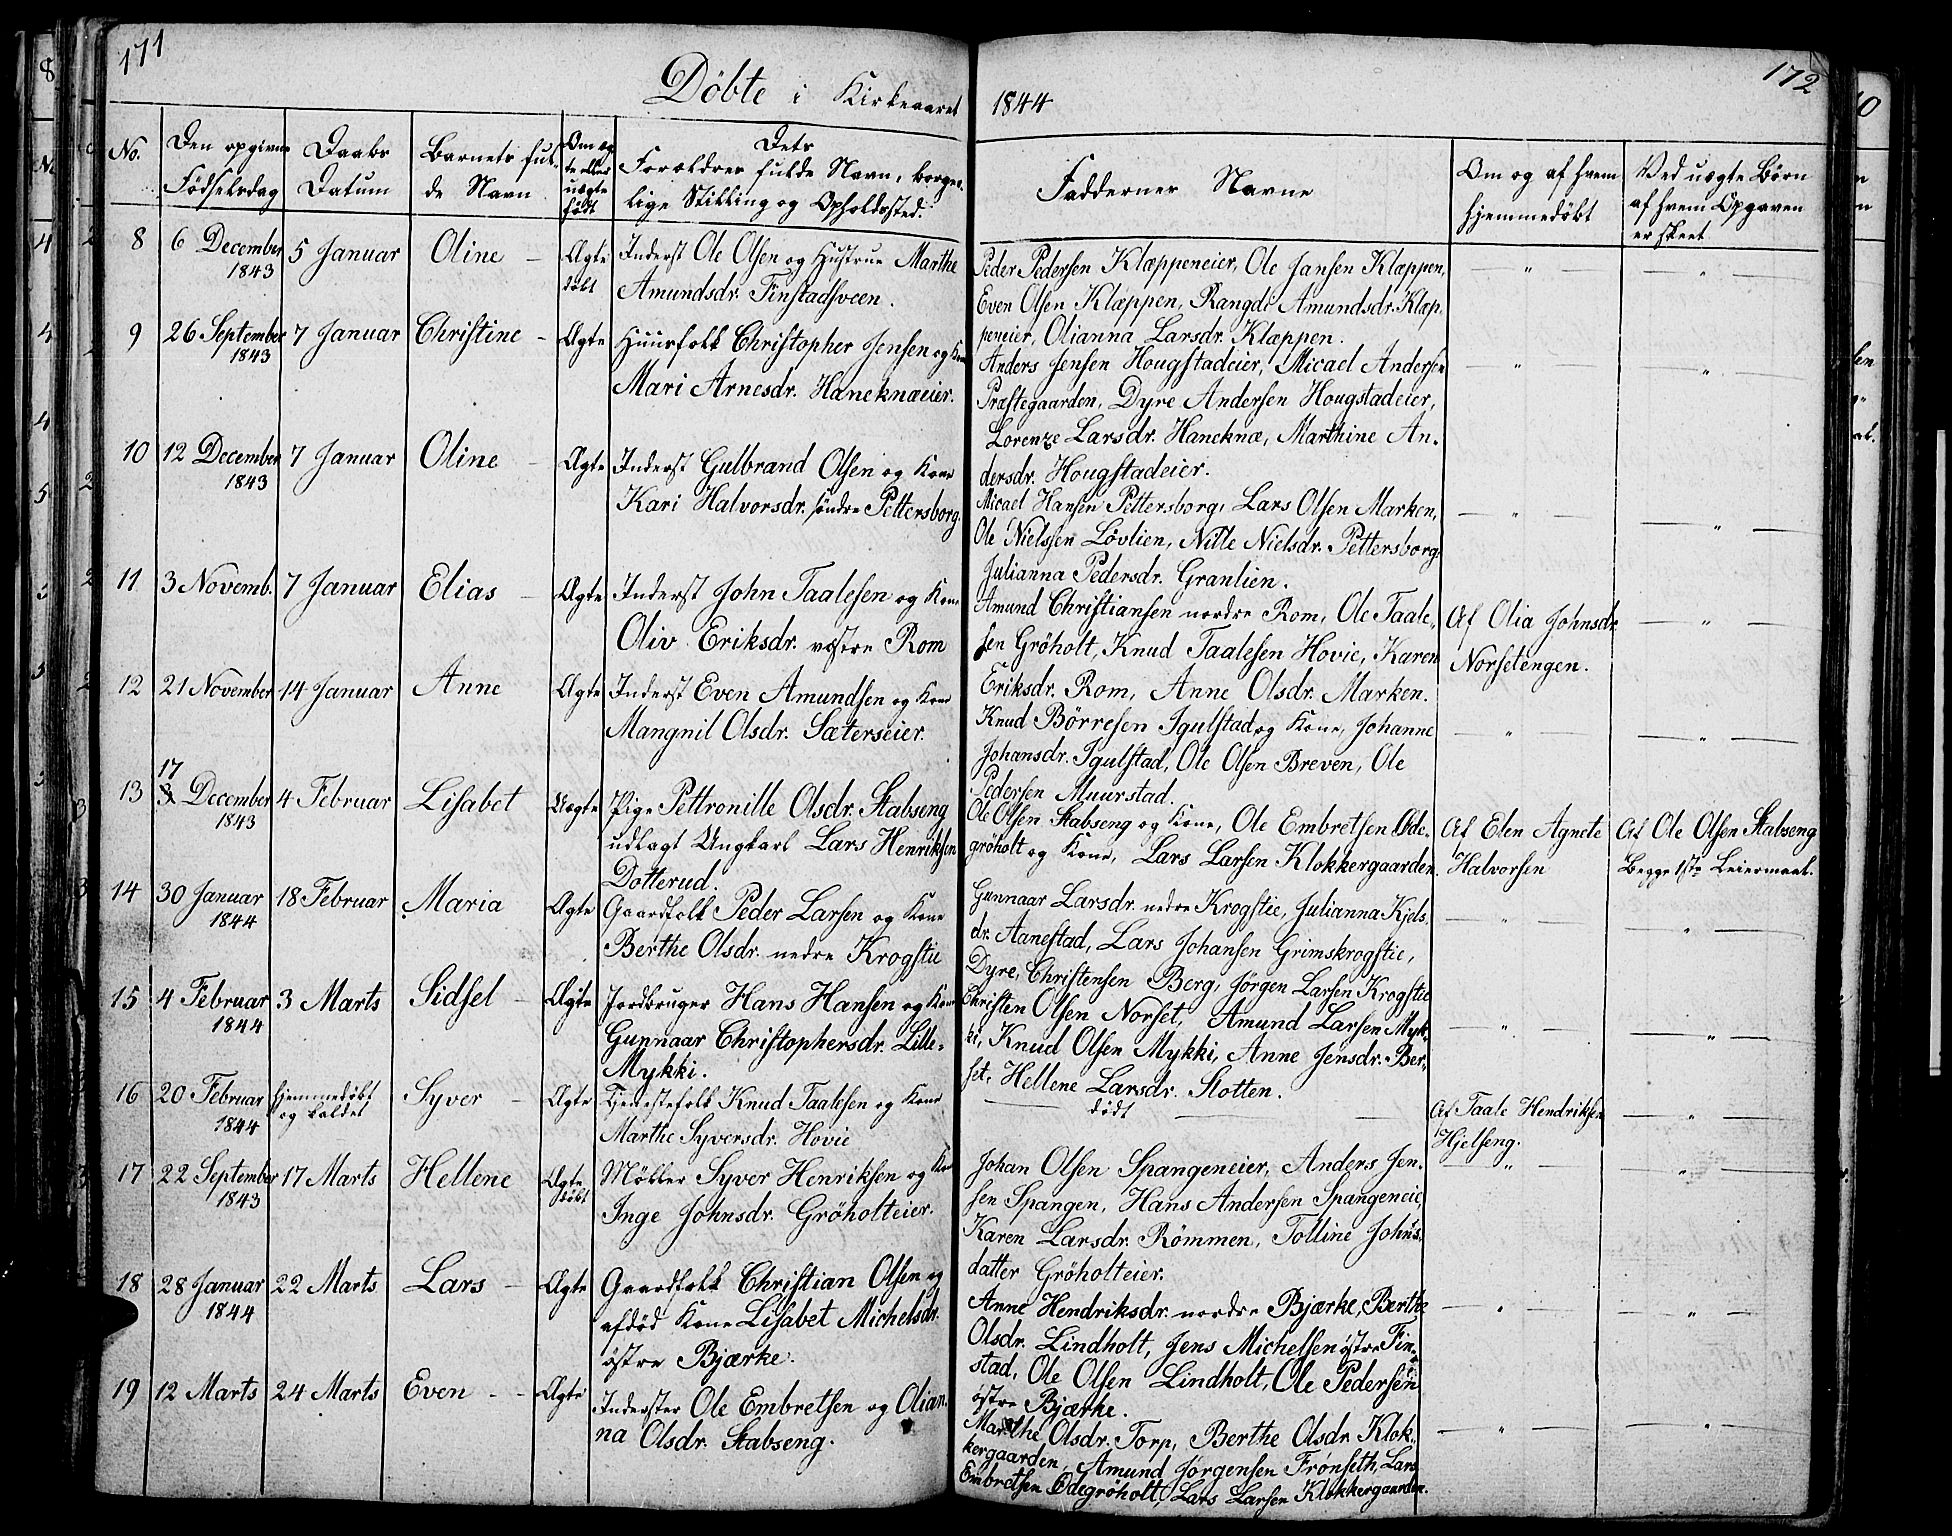 171
Döbte i Kirkeaaret
No.
Den opgivne
Födselsdag
Daabs
Datum
Barnets ful-
de Navn
Om æg
te eller
uægte
född
Dets
Forældres fulde Navn, borger-
lige Stilling og Opholdssted.
8 6 December 5 Januar Oline — Ægte Inderst Ole Olsen og Hustrue Marthe
1843 Amundsdr. Finstadsveen.
9 26 September 7 Januar Christine - Ægte Huusfolk Christopher Jensen og Kone
1843 Mari Arnesdr. Haneknæeier.
10 12 December 7 Januar Oline — Ægte Inderst Gulbrand Olsen og Kone
1843 Kari Halvorsdr. søndre Pettersborg.
11 3 Novemb. 7 Januar Elias — Ægte Inderst John Taalesen og Kone
Oliv Eriksdr. vestre Rom
12 21 November 14 Januar Anne Ægte Inderst Even Amundsen og Kone
Mangnil Olsdr. Sæterseier.
17
13 3 December 4 Februar Lisabet Uægte Pige Pettronille Olsdr. Stabseng
1843 udlagt Ungkarl Lars Henriksen
Dotterud.
14 30 Januar 18 Februar Maria Ægte Gaardfolk Peder Larsen og Kone
1844 Berthe Olsdr. nedre Krogstie
15 4 Februar 3 Marts Sidsel — Ægte Jordbruger Hans Hansen og Kone
1844 Gunnaar Christophersdr. Lille-
Mykki.
16 20 Februar hjemmedøbt Syver — Ægte Tjenestefolk Knud Taalesen og Kone
1844 og kaldet Marthe Syversdr. Hovie
17 22 September 17 Marts Hellene Ægte Møller Syver Henriksen og Kone
1843 Inge Johnsdr. Gröholteier.
18 28 Januar 22 Marts Lars — Ægte Gaardfolk Christian Olsen og
1844 afdöd Kone Lisabet Michelsdr.
østre Bjærke.
19 12 Marts 24 Marts Even - - Ægte Inderster Ole Embretsen og Olian-
na Olsdr. Stabseng.
172
1844
Faddernes Navne
Om og af hvem
hjemmedöbt
Ved uægte Børn
af hvem Opgaven
er skeet
Peder Pedersen Klæppeneier, Ole Jansen Klæppen,
Even Olsen Klæppen, Rangdi Amundsdr. Klæp-
peneier, Olianna Larsdr. Klæppen.
Anders Jensen Hougstadeier, Micael Andersen
Præstegaarden, Dyre Andersen Hougstadeier,
Lorenze Larsdr. Haneknæ, Marthine An-
dersdr. Hougstadeier.
Micael Hansen Pettersborg, Lars Olsen Marken,
Ole Nielssen Løvlien, Nille Nielsdr. Pettersborg
Julianna Pedersdr. Granlien.
Amund Christiansen nordre Rom, Ole Taale- Af Olia Johnsdr.
sen Gröholt, Knud Taalesen Hovie, Karen Norsetengen.
Eriksdr. Rom, Anne Olsdr. Marken.
Knud Börresen Igulstad og Kone, Johanne
Johansdr. Igulstad, Ole Olsen Breven, Ole
Pedersen Muurstad.
Ole Olsen Stabseng og Kone, Ole Embretsen Öde- Af Elen Agnete Af Ole Olsen Stabseng
gröholt og Kone, Lars Larsen Klokkergaarden. Halvorsen Begge 1ste Leiermaal.
Gunnaar Larsdr. nedre Krogstie, Julianna Kjels-
dr. Aanestad, Lars Johansen Grimskrogstie,
Dyre Christensen Berg, Jörgen Larsen Krogstie
Christen Olsen Norset, Amund Larsen Myk-
ki, Knud Olsen Mykki, Anne Jensdr. Ber-
set, Hellene Larsdr. Slotten.
dödt Af Taale Hendriksen
Hjelseng.
Johan Olsen Spangeneier, Anders Jen-
sen Spangen, Hans Andersen Spangeneie
Karen Larsdr. Römmen, Tolline Johns-
datter Gröholteier.
Anne Hendriksdr. nordre Bjærke, Berthe
Olsdr. Lindholt, Jens Michelsen østre Fin-
stad, Ole Olsen Lindholt, Ole Pedersen
østre Bjærke.
Marthe Olsdr. Torp, Berthe Olsdr. Klok-
kergaarden, Amund Jörgensen Fronseth, Lars
Embretsen Ödegröholt, Lars Larsen Klokkergaarden.